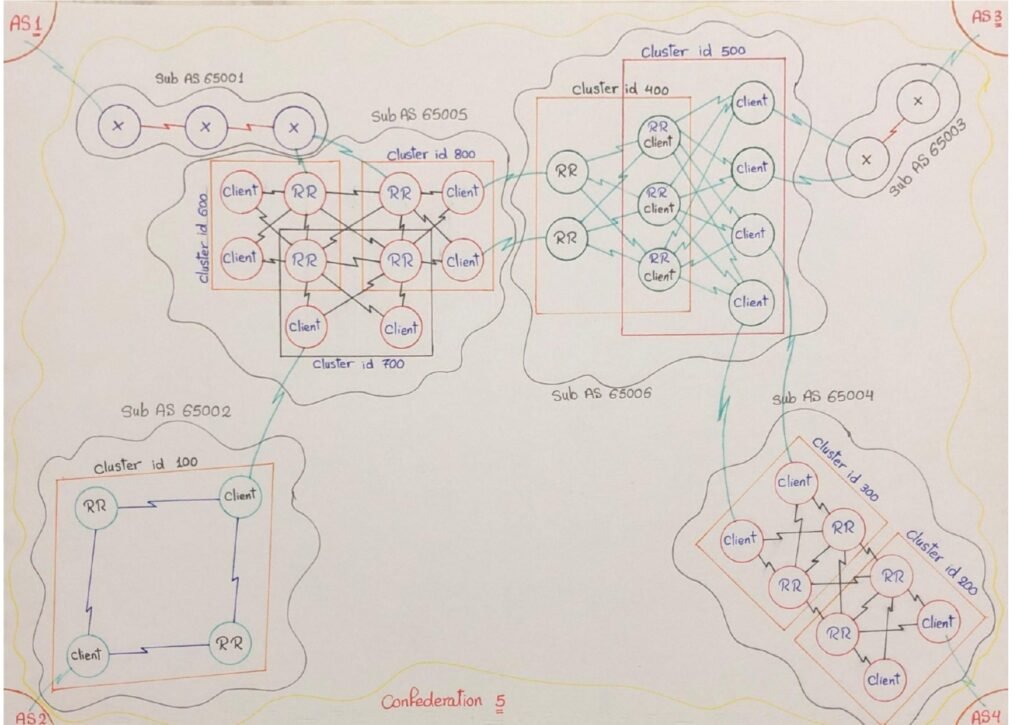 AS 1
AS 3
Sub AS 65001
Sub AS 65005
Cluster id 500
Cluster id 400
X
X
X
Cluster id 800
Cluster id 600
Client
RR
RR
Client
Client
RR
RR
Client
Client
Client
Cluster id 700
RR
RR
RR
Client
RR
Client
RR
Client
Client
Client
Client
Client
X
X
Sub AS 65003
Sub AS 65006
Sub AS 65004
Sub AS 65002
Cluster id 100
RR
Client
Client
RR
Cluster id 300
Client
Client
RR
RR
Cluster id 200
RR
RR
Client
Client
Confederation 5
AS2
AS4